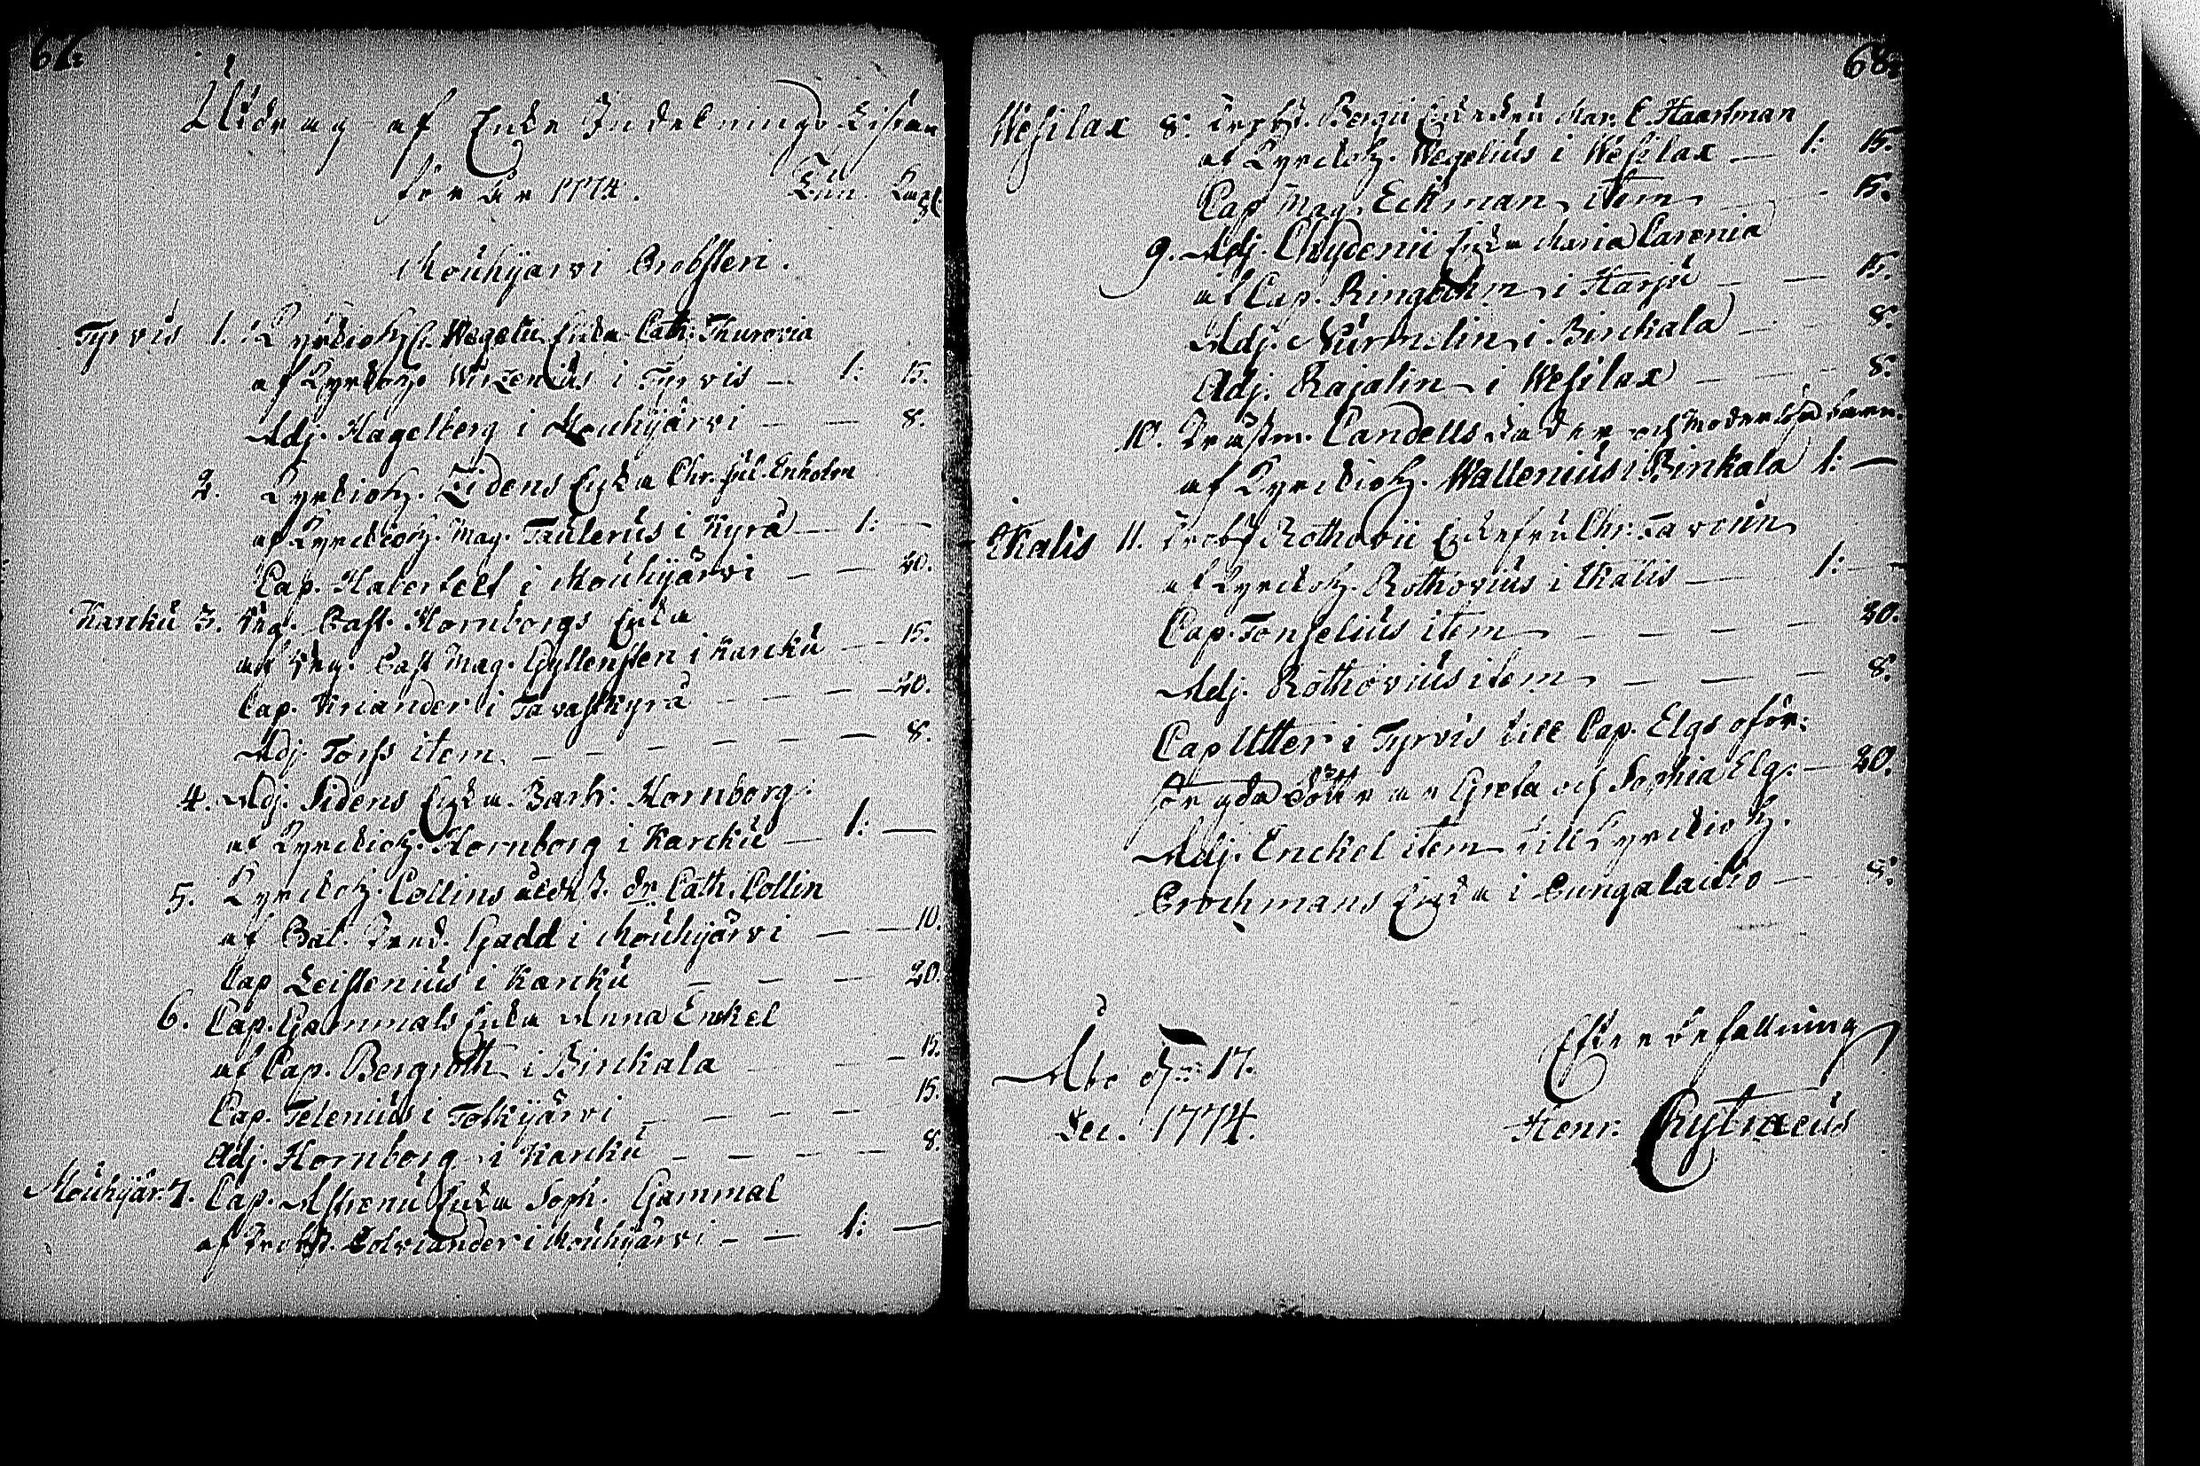 Utdrag af Enke Indelnings Listan
för år 1774. Tun. Kapl
Mouhijärvi Probsteri.
Tyrvis 1. Kyrckioh. Wegelii Enka Cath: Thurovia
af Kyrckioh. Wirzenius i Tyrvis — 1: 15.
Adj. Hagelberg i Mouhijärvi — — 8.
2. Kyrckioh. Lidens Enka Chr. Jul. Enholm
af Kyrckioh. Mag. Taulerus i Kyrä — 1: —
Cap. Haberfelt i Mouhijärvi — — 20.
Karcku 3. Past. Hornborgs Enka
af Past Mag. Gyllensten i Karcku — 15.
Cap. Kriander i Tavastkyrä — — — 20.
Adj. Torss item — — — — — 8.
4. Adj. Sidens Enka Barb: Hornborg
af Kyrckioh. Hornborg i Karcku — 1: —
5. Kyrckoh. Collins äldst. dr Cath. Collin
af Bat. Pred. Gadd i Mouhijärvi — — 10.
Cap Leistenius i Karcku — — — 20.
6. Cap. Gammals Enka Anna Enckel
af Cap. Bergroth i Birckala — — — 15.
Cap. Telenius i Tolkijärvi — — — 15.
Adj. Hornborg i Karcku — — — — 8.
Mouhijär. 7. Cap. Astrenii Enka Soph. Gammal
af Probst. Polviander i Mouhijärvi — — 1: —
68.
Wesilax 8. Probst. Bergii Enkefru Mar. E. Haartman
af Kyrckoh. Wegelius i Wesilax — 1: 15.
Cap Mag. Eckman item — — 15.
9. Adj. Chydenii Enka Maria Carenia
af Cap. Ringbom i Harju — — 15.
Adj. Nurmelin i Birckala — — 8.
Adj. Rajalin i Wesilax — — — 8.
10. Candells fader och moderlösa barn
af Kyrckioh. Wallenius i Birckala 1: —
Ikalis 11. Probst Rothovii Enkefru Chr: Tavonin
af Kyrckoh. Rothovius i Ikalis — 1: —
Cap. Tonselius item — — — — 20.
Adj. Rothovius item — — — 8.
Cap Utter i Tyrvis till Cap. Elgs oför:
sörgda döttrar Greta och Sophia Elg. — 20.
Adj. Enckel item till Kyrckioh.
Brochmans Enka i Pungalaitio — 8.
Åbo d. 17.
Dec. 1774.
Efter befallning
Henr. Chytraeus